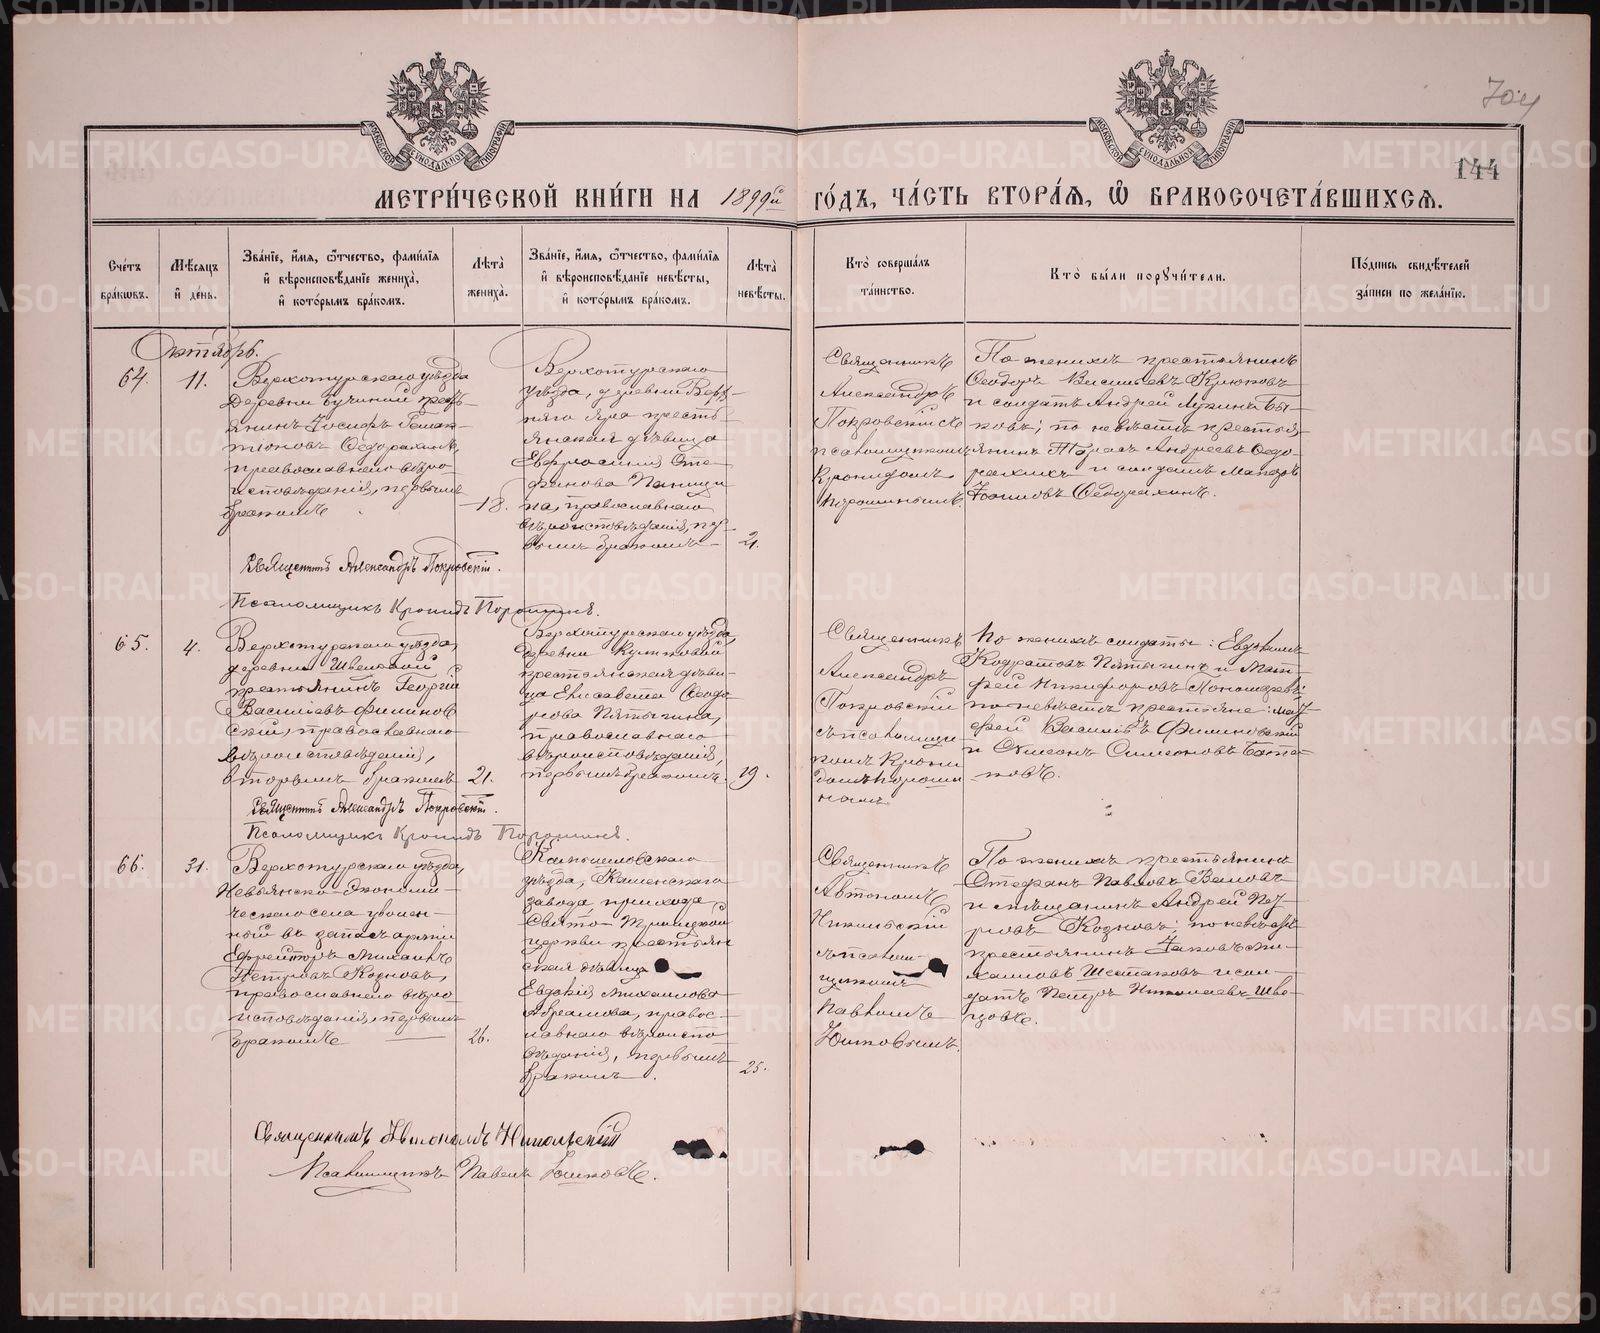 704
144
МЕТРИ́ЧЕСКОЙ КНИ́ГИ НА 1899й ГО́ДЪ, ЧА́СТЬ ВТОРА́Я, Ѡ БРАКОСОЧЕТА́ВШИХСЯ.
Счétъ бра́кѡвъ.
Мѣ́сяцъ и҆ де́нь.
Зва́нїе, и҆́мя, ѻ҆́тчество, фами́лїя и҆ вѣроисповѣ́данїе жениха̀, и҆ кото́рымъ бра́комъ.
Лѣ́та жениха̀.
Зва́нїе, и҆́мя, ѻ҆́тчество, фами́лїя и҆ вѣроисповѣ́данїе невѣ́сты, и҆ кото́рымъ бра́комъ.
Лѣ́та невѣ́сты.
Кто̀ соверша́лъ та́инство.
Кто̀ бы́ли порꙋчи́тели.
По́дпись свидѣ́телей за́писи по жела́нїю.
Октябрь.
64.
11.
Верхотурскаго уѣзда
деревни Бучиной крест-
янинъ Іосифъ
Ѳедорахинъ,
православнаго вѣро
исповѣданія, первымъ
бракомъ
18.
Верхотурскаго
уѣзда, деревни Верх-
няго Яра кресть
янская дѣвица
Евфросинія Сте
фанова
на, православнаго
вѣроисповѣданія, пер-
вымъ бракомъ
21.
Священникъ
Александръ
Покровскій съ
псаломщикомъ
Кронидомъ
Порошинымъ.
По женихѣ крестьянинъ
Ѳеодоръ Васильевъ Крюковъ
и солдатъ Андрей Лукинъ Бы-
ковъ; по невѣстѣ крестья
янинъ Тарасъ Андреевъ Ѳедо
рахинъ и солдатъ
Ѳедорахинъ.
Священникъ Александръ Покровскій.
Псаломщикъ Кронидъ Порошинъ.
65.
4.
Верхотурскаго уѣзда,
деревни
крестьянинъ Георгій
Васильевъ Филинков
скій, православнаго
вѣроисповѣданія,
вторымъ бракомъ
21.
Верхотурскаго уѣзда,
деревни
крестьянская дѣви-
ца Елисавета Ѳеодо
рова Пятыгина,
православнаго
вѣроисповѣданія,
первымъ бракомъ.
19.
Священникъ
Александръ
Покровскій
съ псаломщи
комъ Крони
домъ Пороши
нымъ.
По женихѣ солдаты: Евдокимъ
Кодратовъ Пятыгинъ и Мат
фей Никифоровъ Пономаревъ;
по невѣстѣ крестьяне: Мат
фей Васильевъ Филинковскій
и Симеонъ Симеоновъ
Священникъ Александръ Покровскій.
Псаломщикъ Кронидъ Порошинъ.
66.
31.
Верхотурскаго уѣзда,
Невьянско-Экономи-
ческаго села уволен-
ный въ запасъ арміи
Ефрейторъ Михаилъ
Петровъ Козловъ,
православнаго вѣро
исповѣданія, первымъ
бракомъ
26.
Камышловскаго
уѣзда, Каменскаго
завода, прихода
Свято-Троицкой
церкви крестьян
ская дѣвица
Евдокія Михаилова
Абрамова, правос-
лавнаго вѣроиспо
вѣданія, первымъ
бракомъ.
25.
Священникъ
Автономъ
Никольскій
съ псалом-
щикомъ
Павломъ
Юшковымъ.
По женихѣ крестьянинъ
Стефанъ Павловъ
и мѣщанинъ Андрей Пет
ровъ Козловъ; по невѣстѣ
крестьянинъ Іаковъ Ми-
хаиловъ Шестаковъ и сол-
датъ Петръ Николаевъ Шве-
цовъ.
Священникъ Автономъ Никольскій
Псаломщикъ Павелъ Юшковъ.